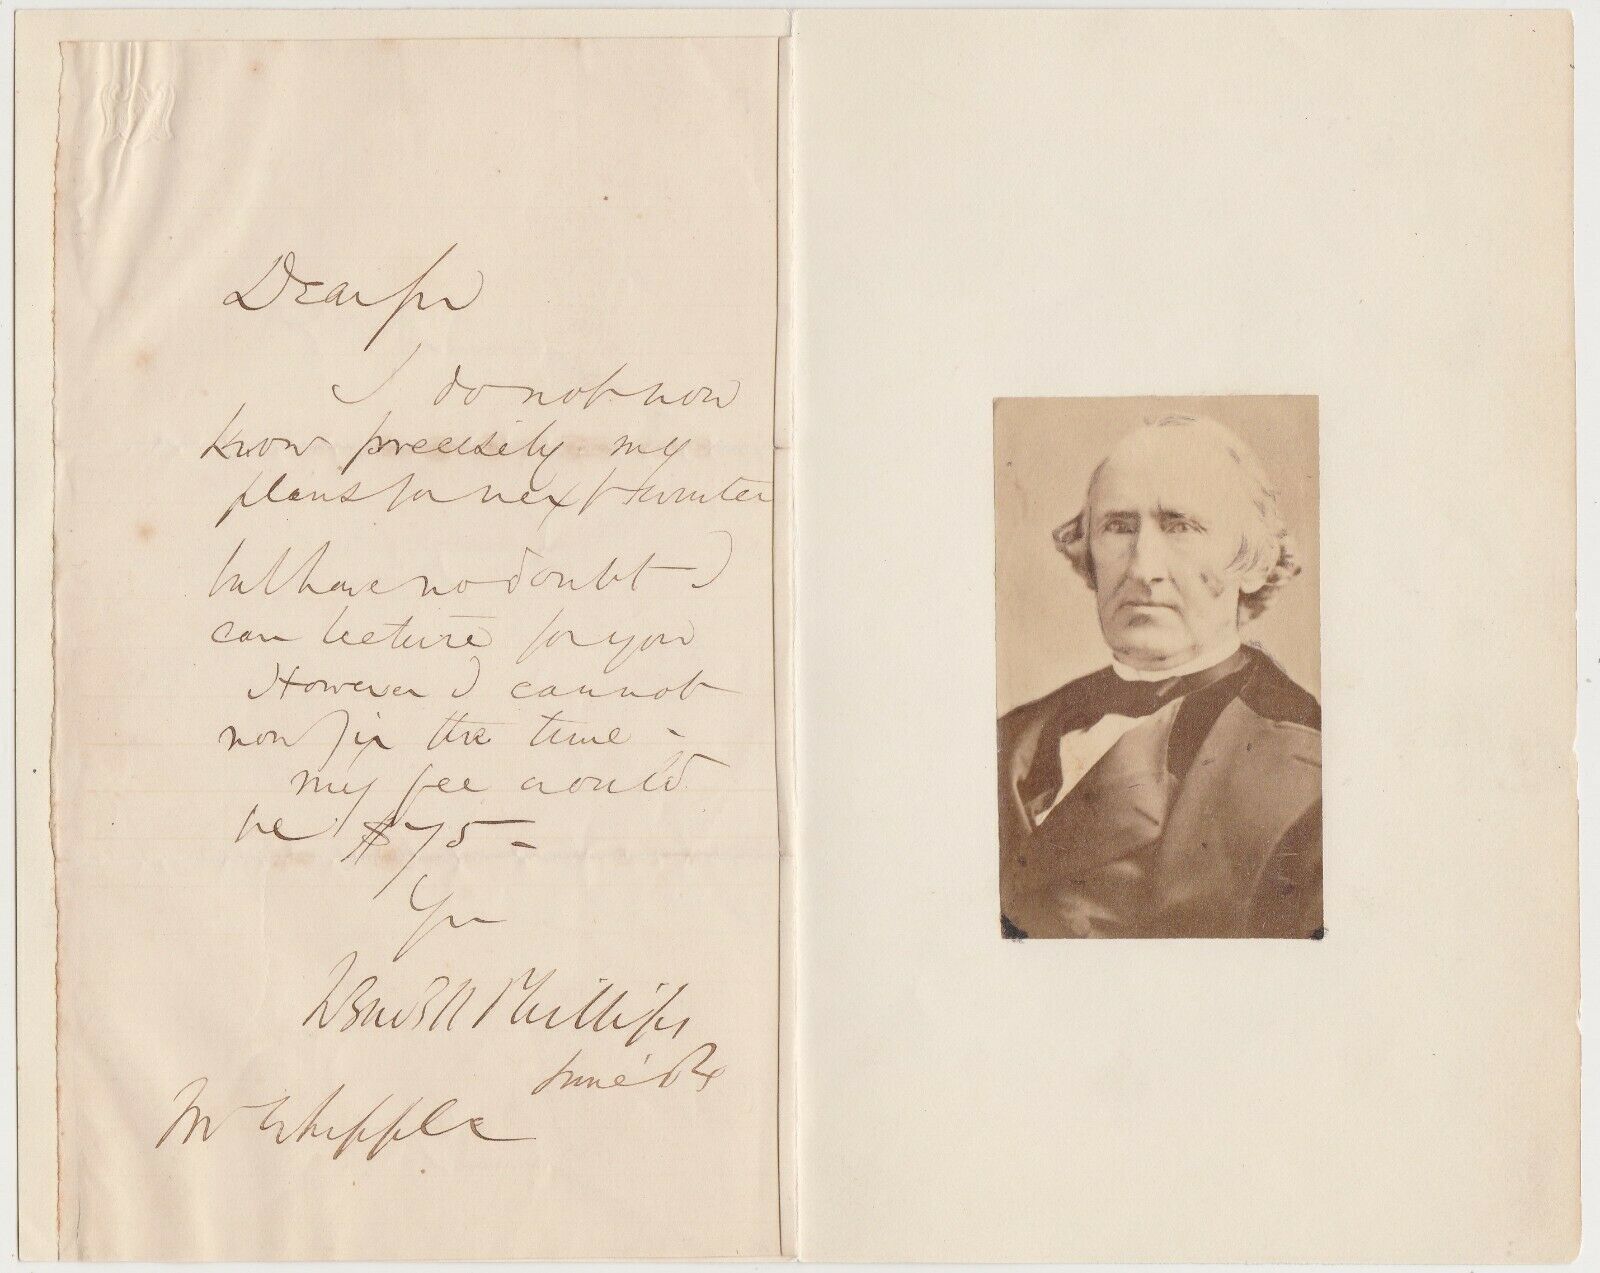 Dear Sir
I do not now
know precisely my
plans for next winter
but have no doubt I
can lecture for you
However I cannot
now fix the time -
my fee would
be $75 -
Yrs
Wendell Phillips
June
Mr Whipple